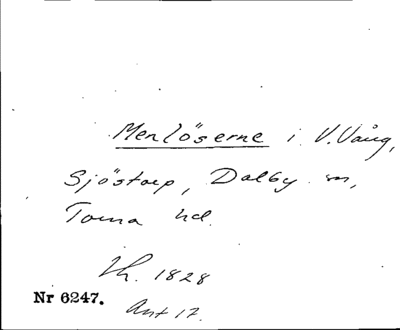 Menlöserne i V. Vång,
Sjöstorp, Dalby sn,
Torna hd.
Lh. 1828
Nr 6247.
Ant 17.